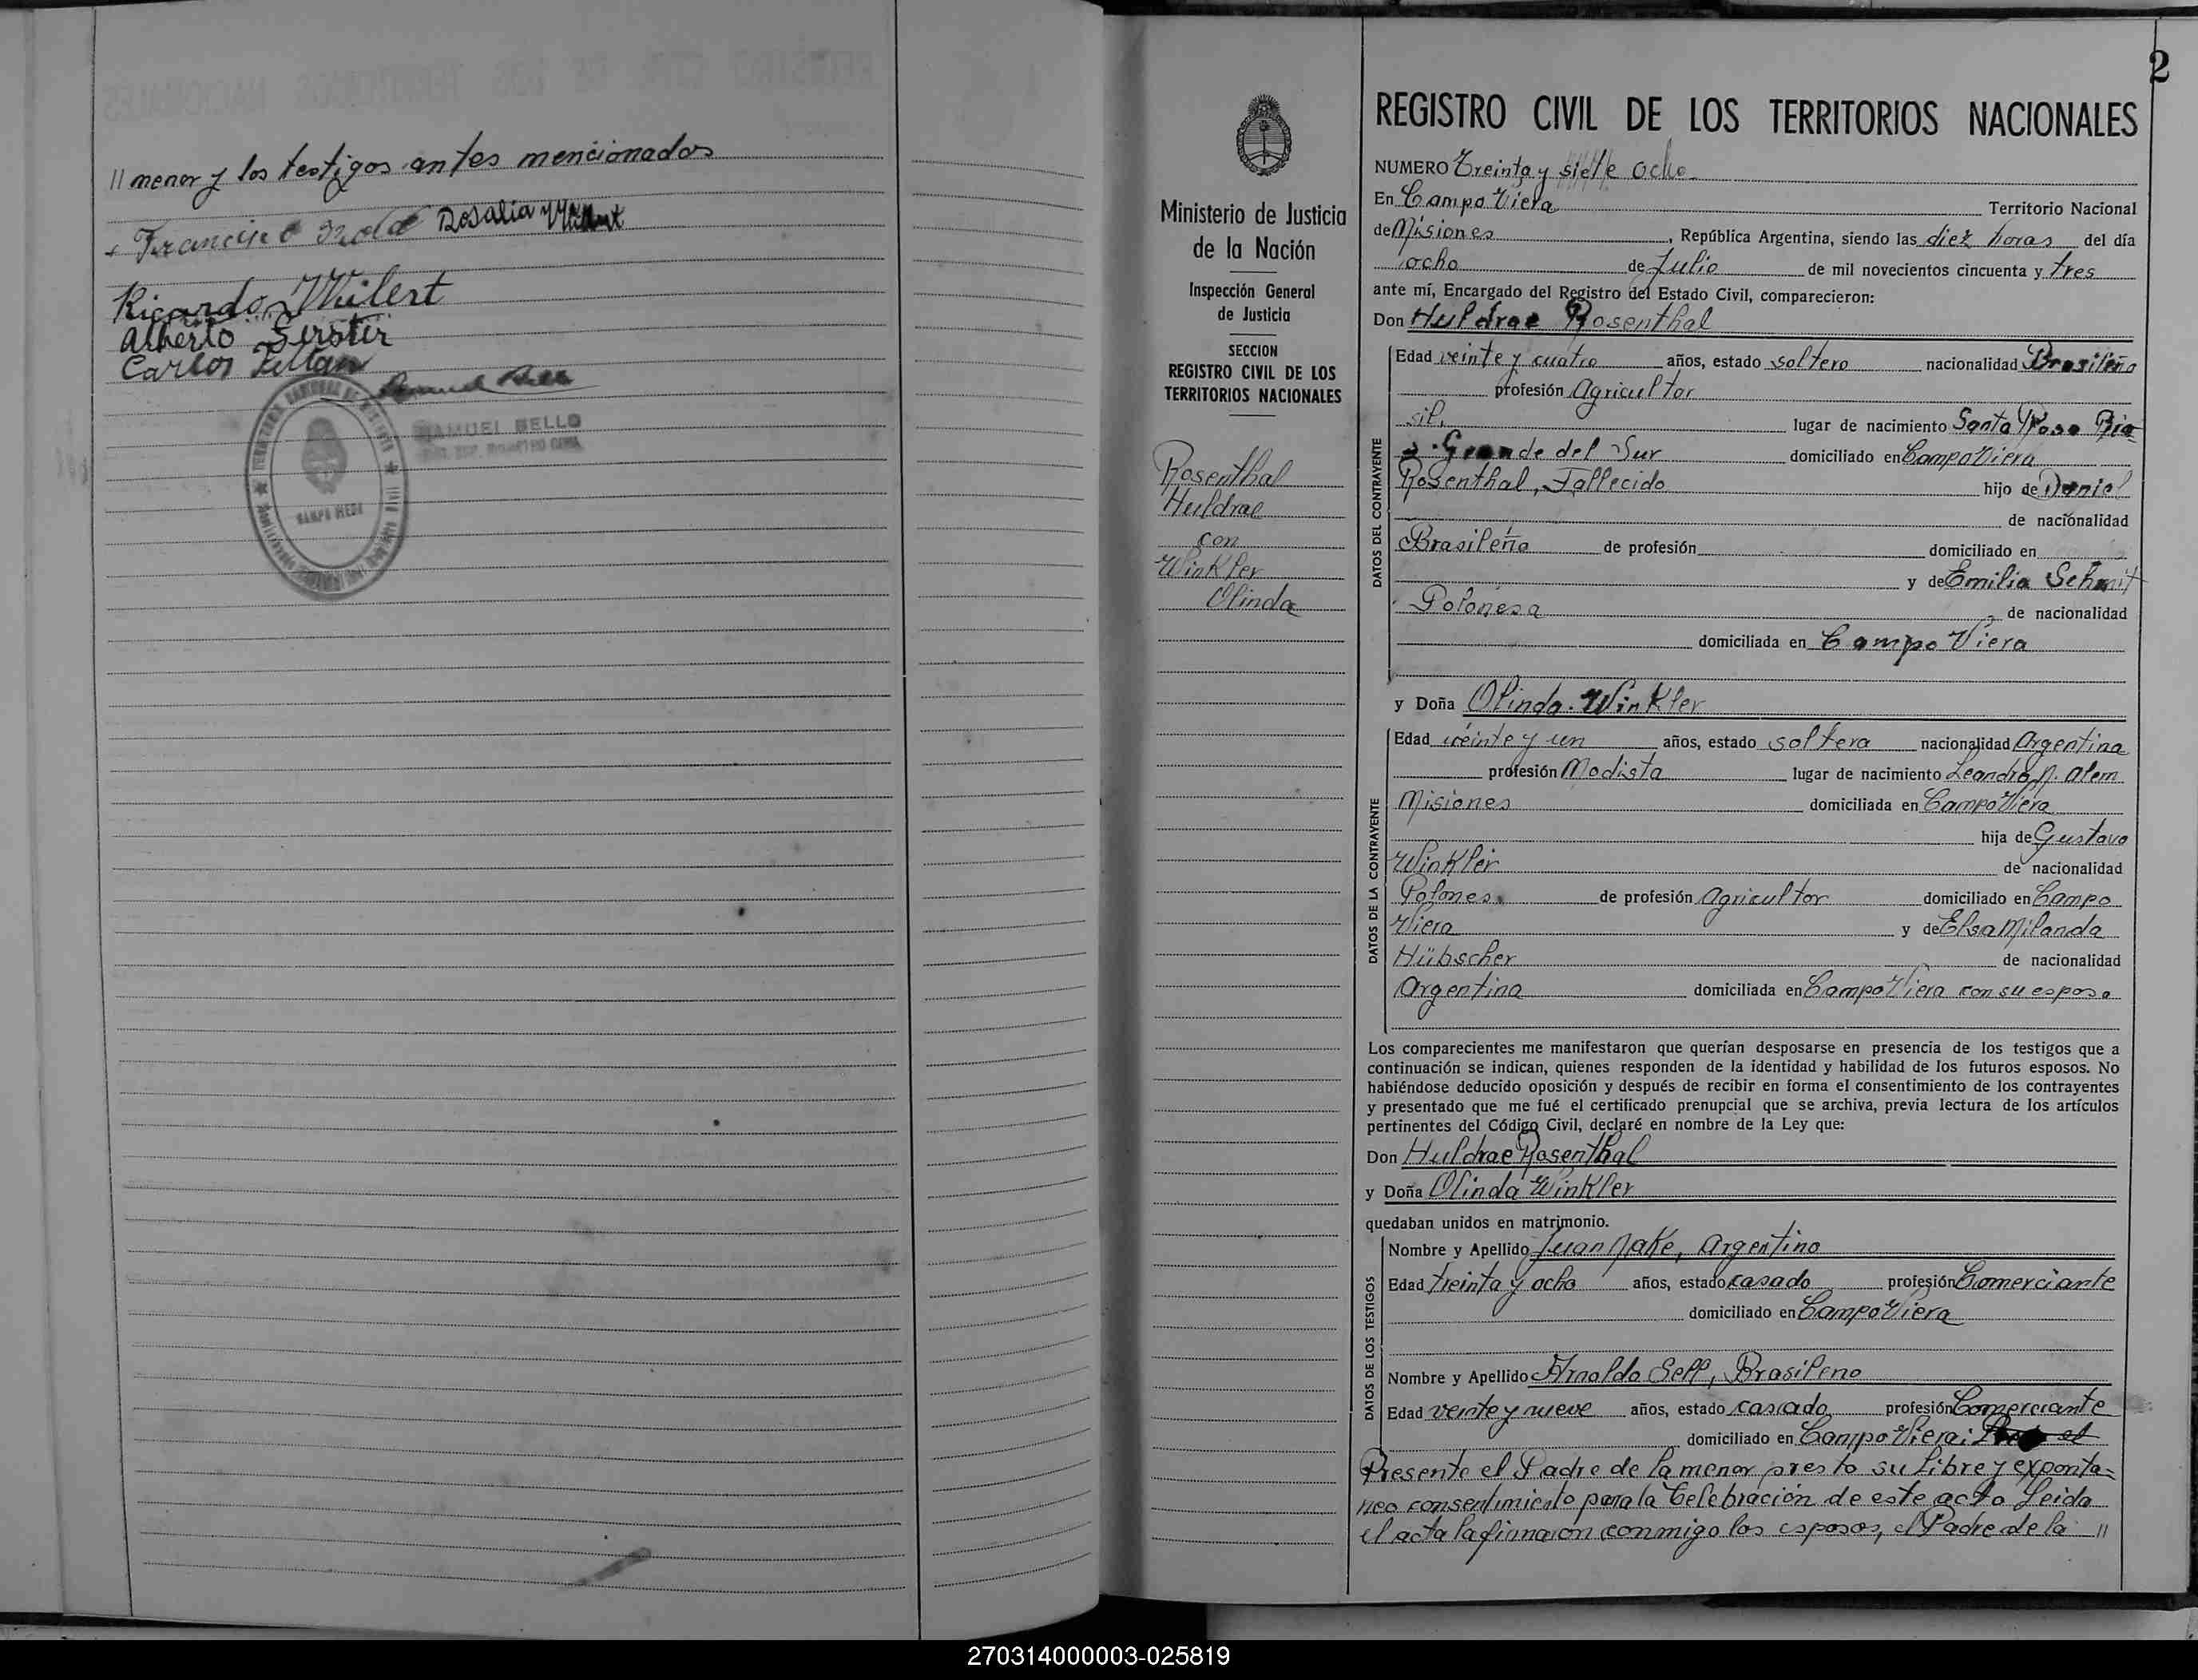 // menor y los testigos antes mencionados
Rosalia
Ricardo Whilert
Alberto Serster
Carlos
MANUEL BELLO
2
Ministerio de Justicia
de la Nación
Inspección General
de Justicia
SECCION
REGISTRO CIVIL DE LOS
TERRITORIOS NACIONALES
Rosenthal
Huldrae
con
Winkler
Olinda
REGISTRO CIVIL DE LOS TERRITORIOS NACIONALES
NUMERO Treinta y siete ocho
En Campo Viera Territorio Nacional
de Misiones, República Argentina, siendo las diez horas del día
ocho de Julio de mil novecientos cincuenta y tres
ante mí, Encargado del Registro del Estado Civil, comparecieron:
Don Huldrae Rosenthal
DATOS DEL CONTRAYENTE
Edad veinte y cuatro años, estado soltero nacionalidad Brasileña
profesión Agricultor
sil, lugar de nacimiento Santa Rosa Rio
Grande del Sur domiciliado en Campo Viera
Rosenthal, Fallecido hijo de Daniel
de nacionalidad
Brasileña de profesión domiciliado en
y de Emilia Schmit
Polonesa de nacionalidad
domiciliada en Campo Viera
y Doña Olinda Winkler
DATOS DE LA CONTRAYENTE
Edad veinte y un años, estado soltera nacionalidad Argentina
profesión Modista lugar de nacimiento Leandro N. Alem
Misiones domiciliada en Campo Viera
hija de Gustavo
Winkler de nacionalidad
Polonesa de profesión Agricultor domiciliado en Campo
Viera y de Elsa Milanda
Hübscher de nacionalidad
Argentina domiciliada en Campo Viera con su esposo
Los comparecientes me manifestaron que querían desposarse en presencia de los testigos que a
continuación se indican, quienes responden de la identidad y habilidad de los futuros esposos. No
habiéndose deducido oposición y después de recibir en forma el consentimiento de los contrayentes
y presentado que me fué el certificado prenupcial que se archiva, previa lectura de los artículos
pertinentes del Código Civil, declaré en nombre de la Ley que:
Don Huldrae Rosenthal
y Doña Olinda Winkler
quedaban unidos en matrimonio.
DATOS DE LOS TESTIGOS
Nombre y Apellido Juan Nake, Argentino
Edad treinta y ocho años, estado casado profesión Comerciante
domiciliado en Campo Viera
Nombre y Apellido Arnoldo Sell, Brasileno
Edad veinte y nueve años, estado casado profesión Comerciante
domiciliado en Campo Viera: el
Presente el Padre de la menor presto su libre y exponta=
neo consentimiento para la Celebración de este acto Leida
el acta la firmaron conmigo los esposos, el Padre de la //
270314000003-025819